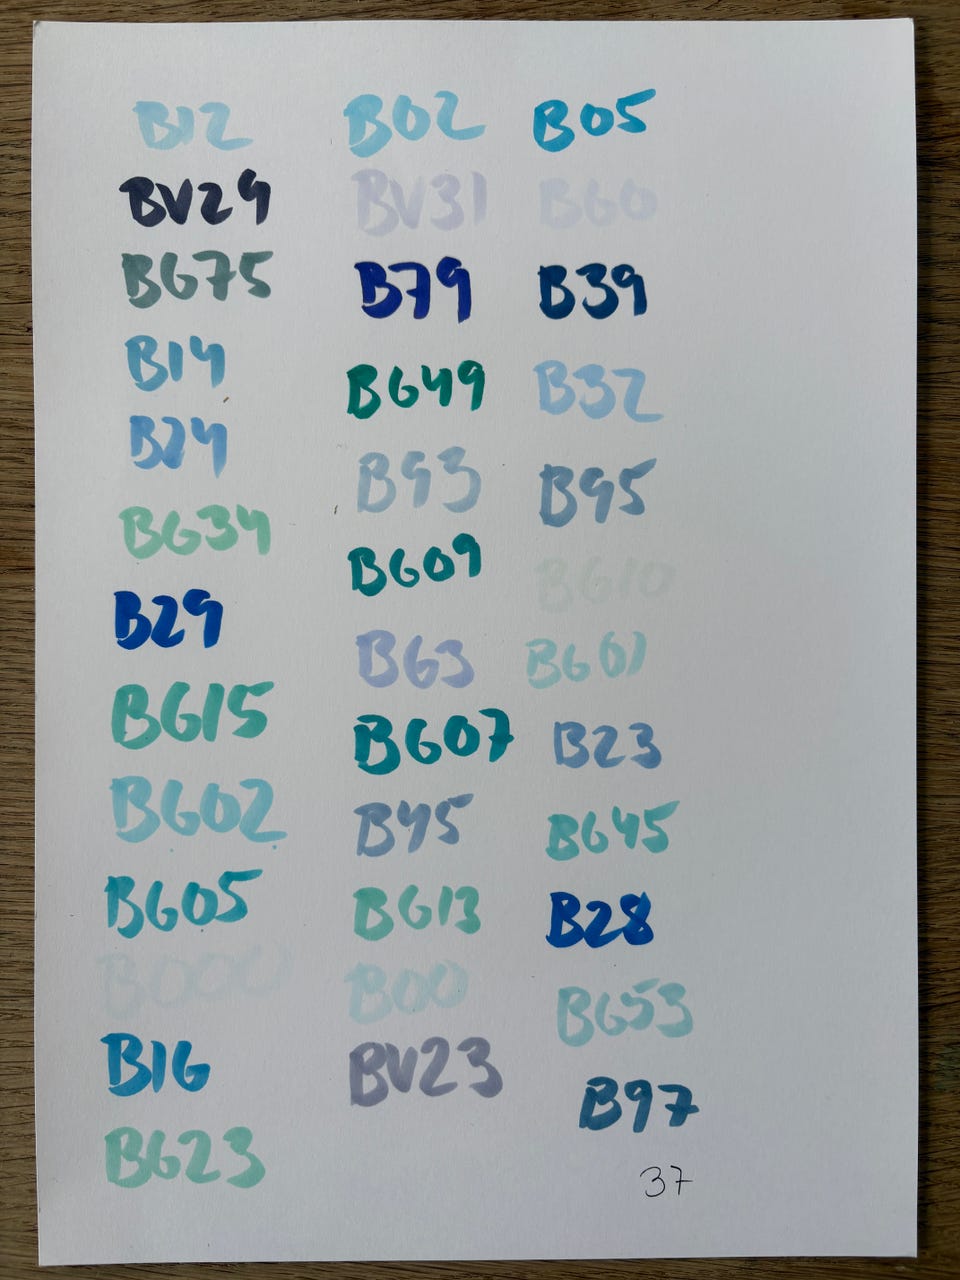 B12
BV29
BG75
B14
B24
BG34
B29
BG15
BG02
BG05
B000
B16
BG23
B02
BV31
B79
BG49
B93
BG09
B63
BG07
B45
BG13
B00
BV23
B05
B60
B39
B32
B95
BG10
BG01
B23
BG45
B28
BG53
B97
37